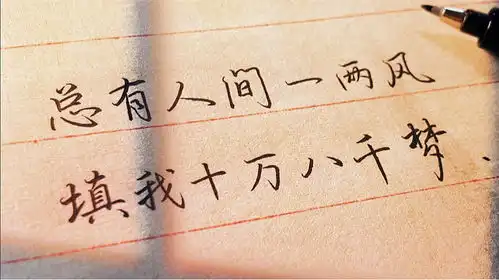 总有人间一两风
填我十万八千梦.